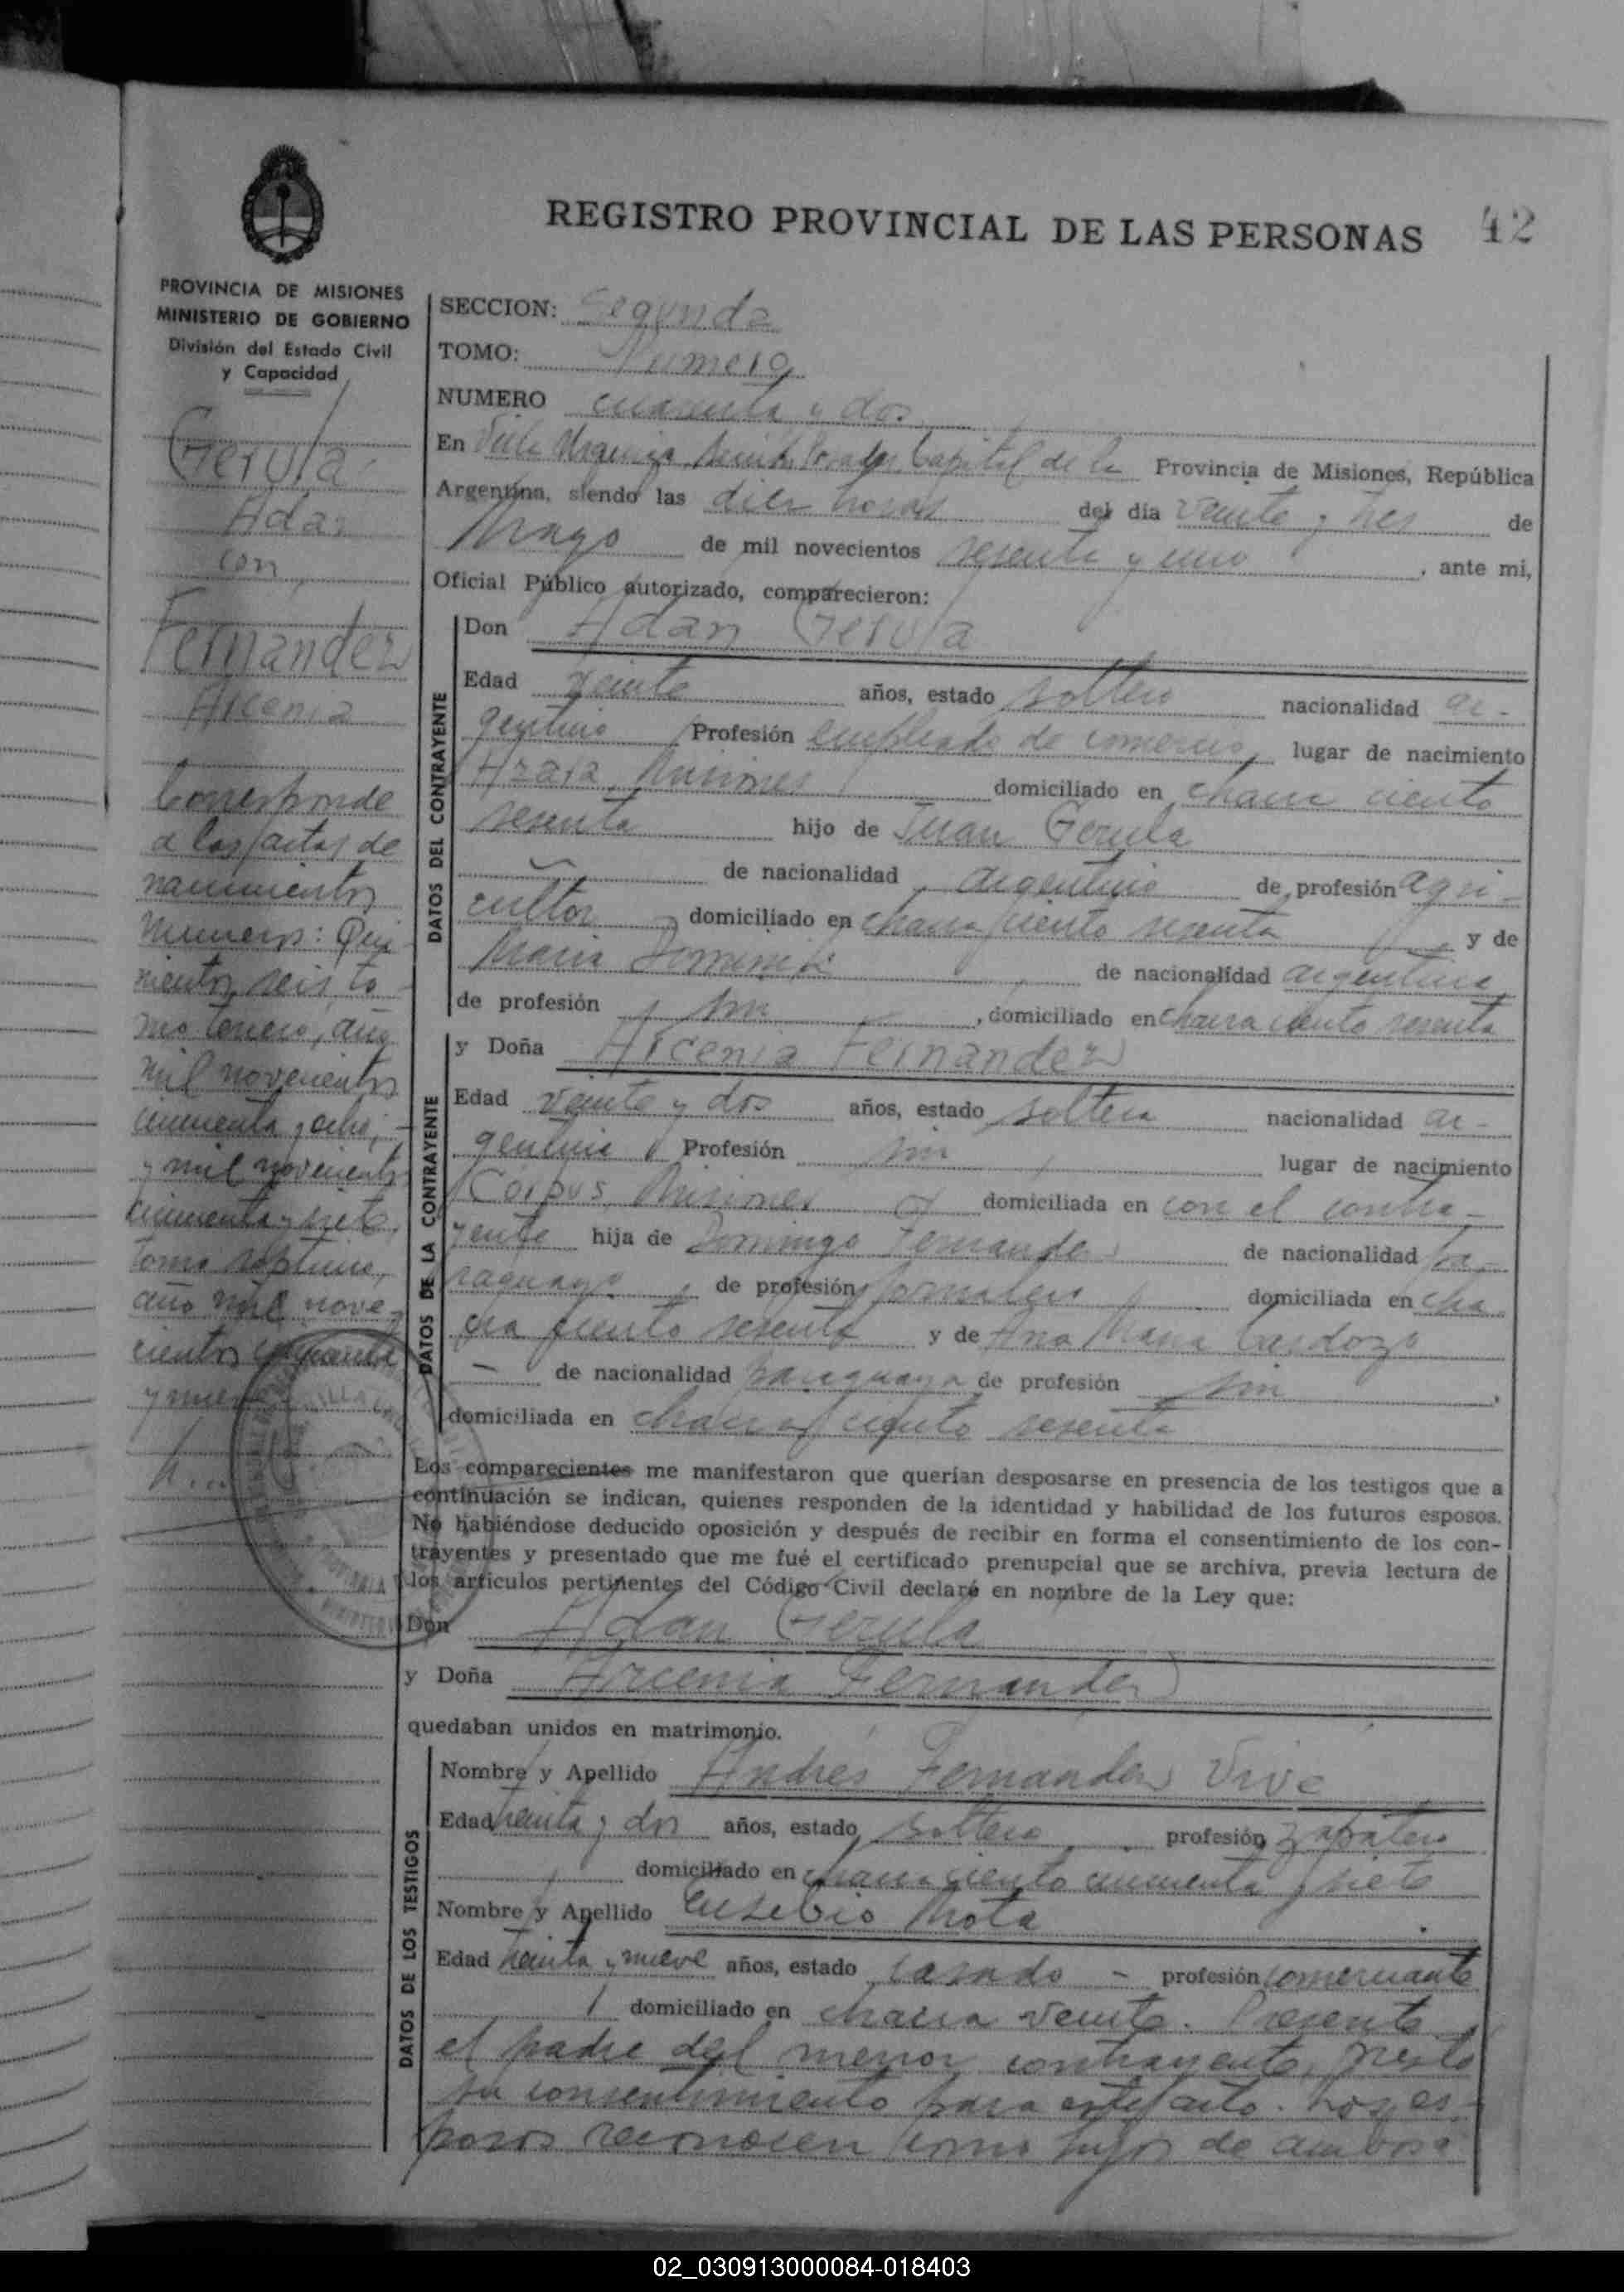 REGISTRO PROVINCIAL DE LAS PERSONAS 42
PROVINCIA DE MISIONES
MINISTERIO DE GOBIERNO
División del Estado Civil
y Capacidad
Gerula
Adan
con
Fernandez
Arcenia
Corresponde
a las actas de
nacimientos
numeros: Qui-
nientos seis, to-
mo tercero, año
mil novecientos
cincuenta y ocho,
y mil novecientos
cincuenta y siete,
tomo septimo,
año mil nove-
cientos cincuenta
y nueve
SECCION: Segunda
TOMO: Primero
NUMERO cuarenta y dos
En Villa Urquiza, Posadas Capital de la Provincia de Misiones, República
Argentina, siendo las diez horas del día veinte y tres de
Mayo de mil novecientos sesenta y uno , ante mi,
Oficial Público autorizado, comparecieron:
DATOS DEL CONTRAYENTE
Don Adan Gerula
Edad veinte años, estado soltero nacionalidad ar-
gentino Profesión empleado de comercio, lugar de nacimiento
Azara, Misiones domiciliado en chacra ciento
sesenta hijo de Juan Gerula
de nacionalidad argentino de profesión agri-
cultor domiciliado en chacra ciento sesenta y de
Maria de nacionalidad argentina
de profesión sin , domiciliado en chacra ciento sesenta
DATOS DE LA CONTRAYENTE
y Doña Arcenia Fernandez
Edad veinte y dos años, estado soltera nacionalidad ar-
gentina Profesión sin lugar de nacimiento
Corpus, Misiones domiciliada en con el contra-
yente hija de Domingo Fernandez de nacionalidad pa-
raguayo, de profesión jornalero domiciliada en cha-
cra ciento sesenta y de Ana Maria Cardozo
- de nacionalidad paraguaya de profesión sin ,
domiciliada en chacra ciento sesenta
Los comparecientes me manifestaron que querían desposarse en presencia de los testigos que a
continuación se indican, quienes responden de la identidad y habilidad de los futuros esposos.
No habiéndose deducido oposición y después de recibir en forma el consentimiento de los con-
trayentes y presentado que me fué el certificado prenupcial que se archiva, previa lectura de
los artículos pertinentes del Código Civil declaré en nombre de la Ley que:
Don Adan Gerula
y Doña Arcenia Fernandez
quedaban unidos en matrimonio.
DATOS DE LOS TESTIGOS
Nombre y Apellido Andrés Fernandez Vive
Edad treinta y dos años, estado soltero profesión zapatero
domiciliado en chacra ciento cincuenta y siete
Nombre y Apellido Eusebio Mota
Edad treinta y nueve años, estado casado - profesión comerciante
domiciliado en chacra veinte. Presente
el padre del menor contrayente, presta
su consentimiento para este acto. Los es-
posos reconocen como hijos de ambos a
02_030913000084-018403